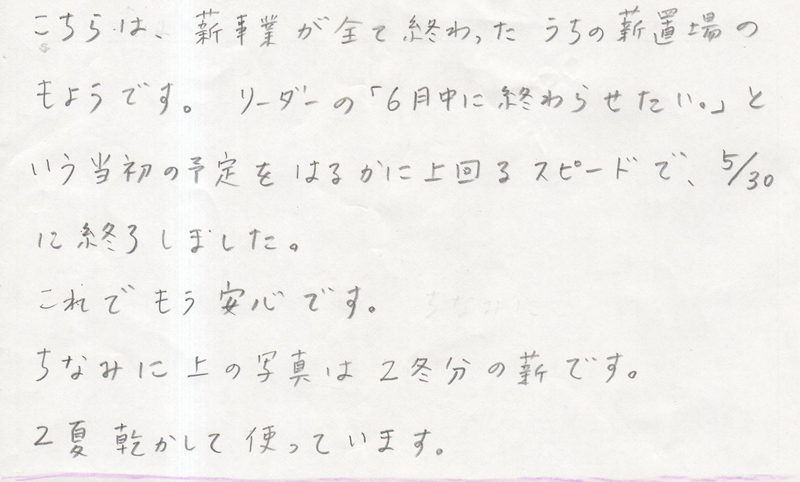 こちらは、薪事業が全て終わった うちの薪置場の
もようです。 リーダーの「6月中に終わらせたい。」と
いう当初の予定をはるかに上回るスピードで、5/30
に終了しました。
これでもう安心です。
ちなみに上の写真は2冬分の薪です。
2夏乾かして使っています。